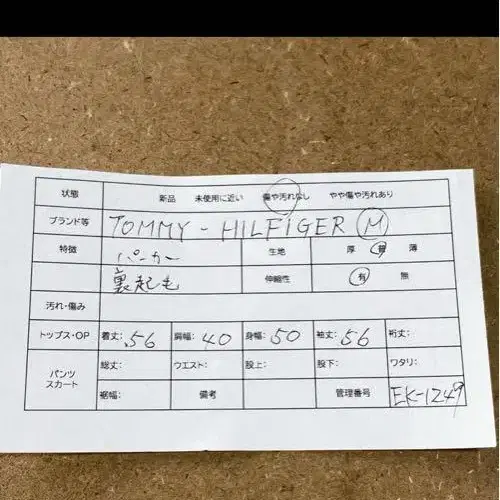 状態 新品 未使用に近い 傷や汚れなし やや傷や汚れあり
ブランド等 TOMMY - HILFIGER M
特徴 パーカー 生地 厚 普 薄
裏起毛 伸縮性 有 無
汚れ・傷み
トップス・OP 着丈: 56 肩幅: 40 身幅: 50 袖丈: 56 裄丈:
パンツ スカート 総丈: ウエスト: 股上: 股下: ワタリ:
裾幅: 備考 管理番号 EK-1249